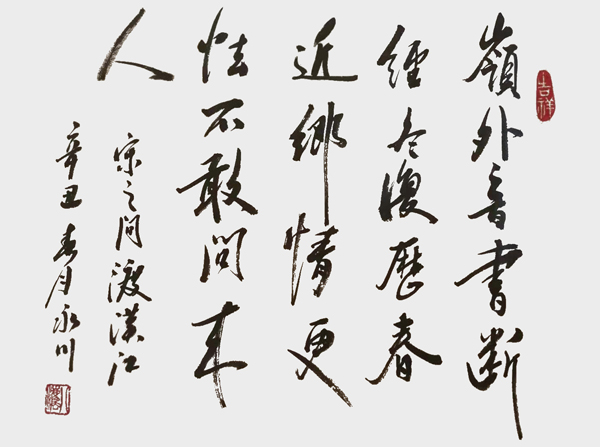 吉祥
嶺外音書斷
經冬復歷春
近鄉情更
怯不敢問來
人
宋之问渡漢江
辛丑春月永川